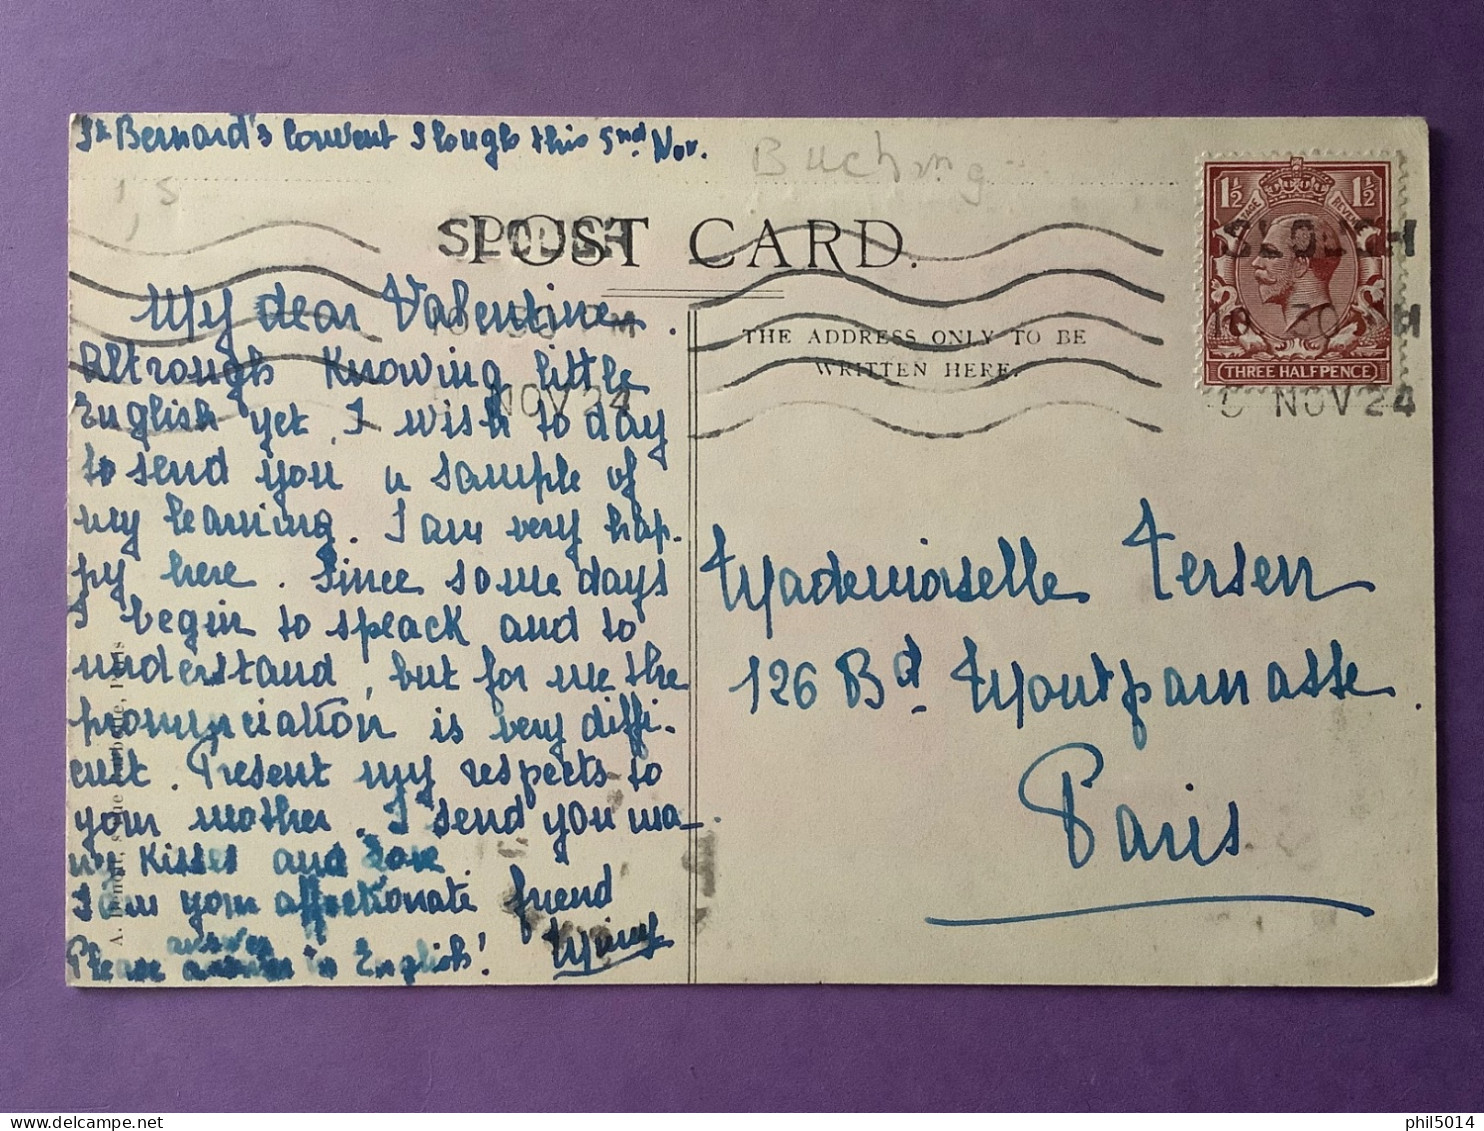 St Bernard's Convent Slough this 5nd Nov.
Buching
1,5
POST CARD.
SLOUGH
NOV 24
THE ADDRESS ONLY TO BE
WRITTEN HERE.
1½ 1½
THREE HALFPENCE
SLOUGH
NOV 24
My dear Valentine.
Altrough Knowing little
English yet, I wish to day
to send you a sample of
my learning. I am very hap-
py here. Since some days
I begin to speack and to
understand, but for me the
pronunciation is very diffi-
cult. Present my respects to
your mother. I send you ma-
ny kisses and love
I am your affectionate friend
answer
Please in English!
Mademoiselle Tersen
126 Bd Montparnasse.
Paris.
phil5014